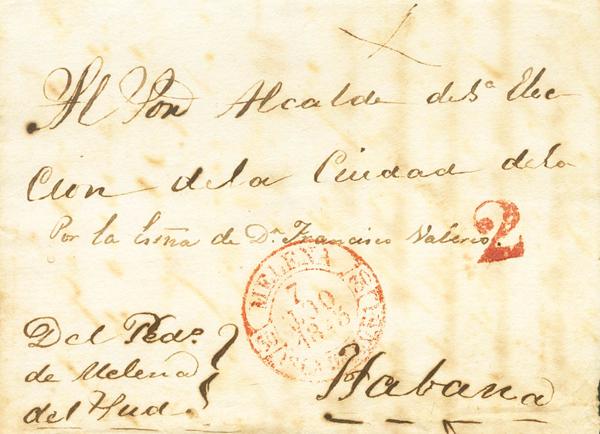 Al Sor Alcalde de 2ª Elec-
cion de la Ciudad de la
Por la Esñia de Dn Francisco Valerio.
2
MELENA
7
1843
Del Pedo.
de Melena
del Sud.
Habana